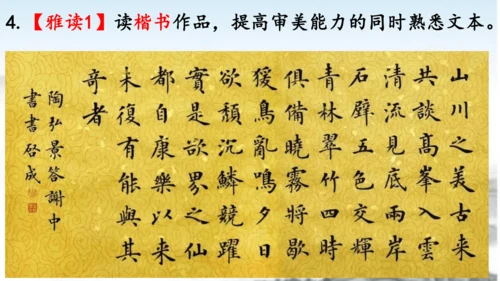 4.【雅读1】读楷书作品，提高审美能力的同时熟悉文本。
山川之美古来
共談高峯入雲
清流見底兩岸
石壁五色交輝
青林翠竹四時
俱備曉霧將歇
猨鳥亂鳴夕日
欲頹沉鱗競躍
實是欲界之仙
都自康樂以来
未復有能與其
奇者
陶弘景答謝中
書書啓成